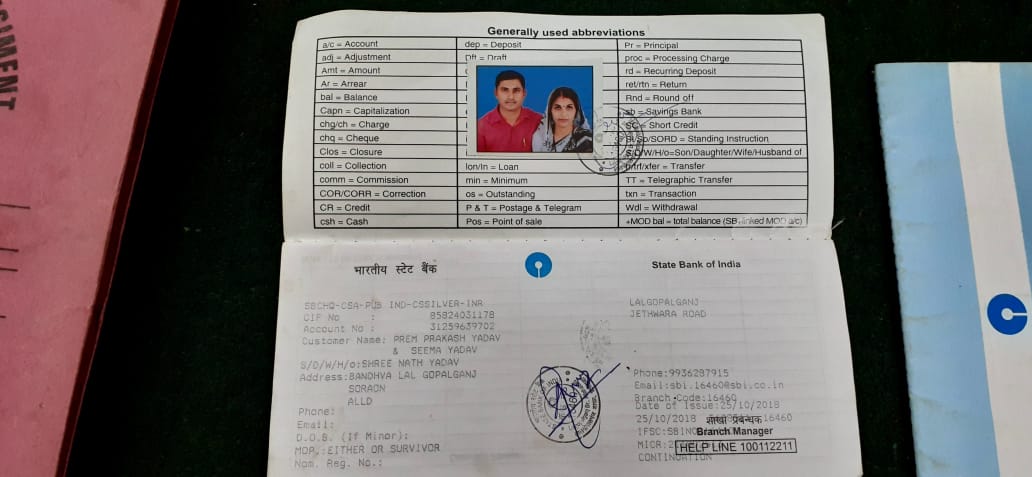 Generally used abbreviations
a/c = Account dep = Deposit Pr = Principal
adj = Adjustment Dft = Draft proc = Processing Charge
Amt = Amount rd = Recurring Deposit
Ar = Arrear ret/rtn = Return
bal = Balance Rnd = Round off
Capn = Capitalization sb = Savings Bank
chg/ch = Charge SC = Short Credit
chq = Cheque SI/So/SORD = Standing Instruction
Clos = Closure S/D/W/H/o=Son/Daughter/Wife/Husband of
coll = Collection lon/ln = Loan trf/xfer = Transfer
comm = Commission min = Minimum TT = Telegraphic Transfer
COR/CORR = Correction os = Outstanding txn = Transaction
CR = Credit P & T = Postage & Telegram Wdl = Withdrawal
csh = Cash Pos = Point of sale +MOD bal = total balance (SB+linked MOD a/c)
भारतीय स्टेट बैंक State Bank of India
SBCHQ-CSA-PUB IND-CSSILVER-INR
CIF No : 85824031178
Account No : 31259639702
Customer Name: PREM PRAKASH YADAV
& SEEMA YADAV
S/D/W/H/o:SHREE NATH YADAV
Address:BANDHVA LAL GOPALGANJ
SORAON
ALLD
Phone:
Email:
D.O.B. (If Minor):
MOP.:EITHER OR SURVIVOR
Nom. Reg. No.:
LALGOPALGANJ
JETHWARA ROAD
Phone:9936287915
Email:sbi.16460@sbi.co.in
Branch Code:16460
Date of Issue:25/10/2018
25/10/2018 16460
शाखा प्रबन्धक
IFSC:SBIN
Branch Manager
MICR:2
HELP LINE 100112211
CONTINUATION